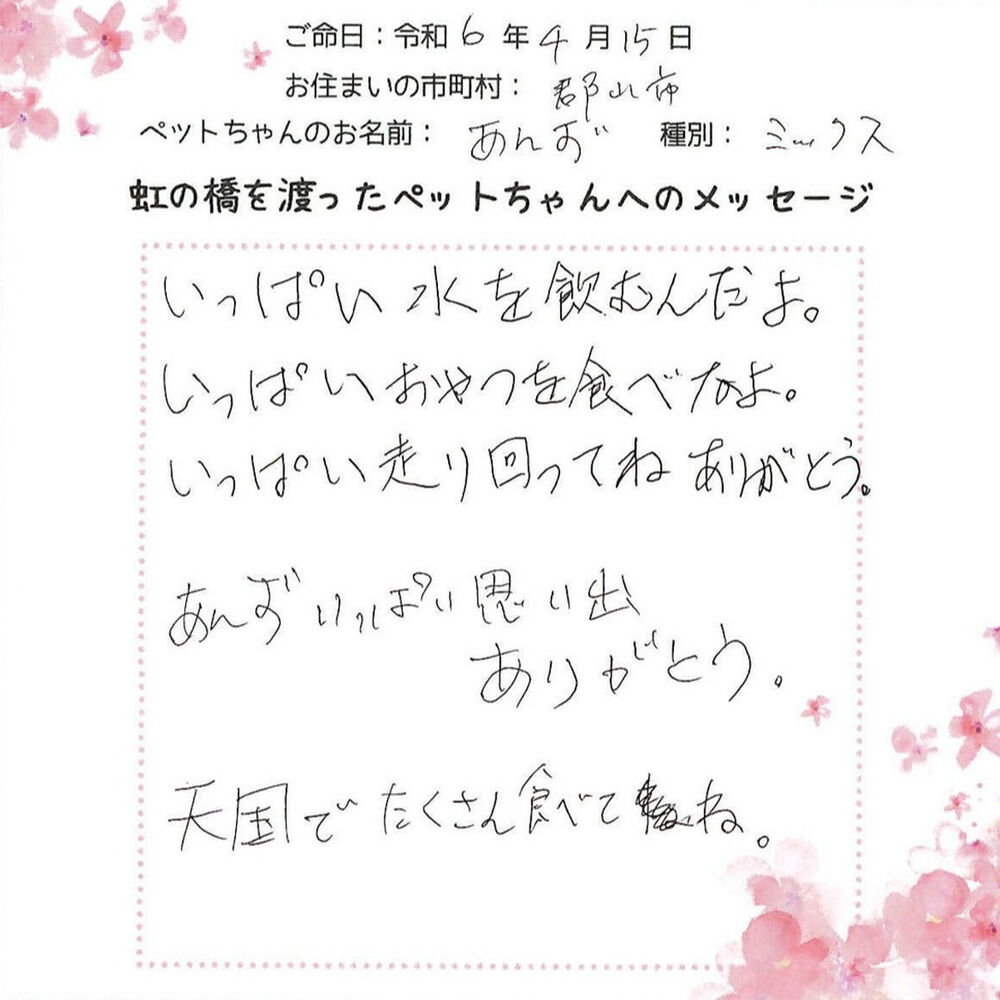 ご命日：令和6年4月15日
お住まいの市町村：郡山市
ペットちゃんのお名前：あんず 種別：ミックス
虹の橋を渡ったペットちゃんへのメッセージ
いっぱい水を飲むんだよ。
いっぱいおやつを食べなよ。
いっぱい走り回ってね ありがとう。
あんずいっぱい思い出
ありがとう。
天国でたくさん食べてね。